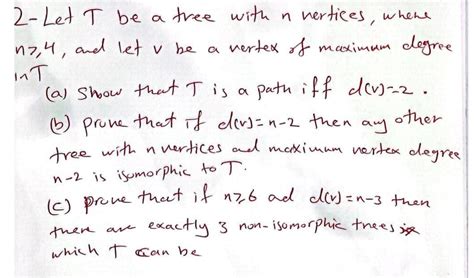 2- Let T be a tree with n vertices, where
n≥4, and let v be a vertex of maximum degree
in T
(a) Show that T is a path iff d(v)=2.
(b) prove that if d(v)=n-2 then any other
tree with n vertices and maximum vertex degree
n-2 is isomorphic to T.
(c) prove that if n≥6 ad d(v)=n-3 then
there are exactly 3 non-isomorphic trees
which T can be